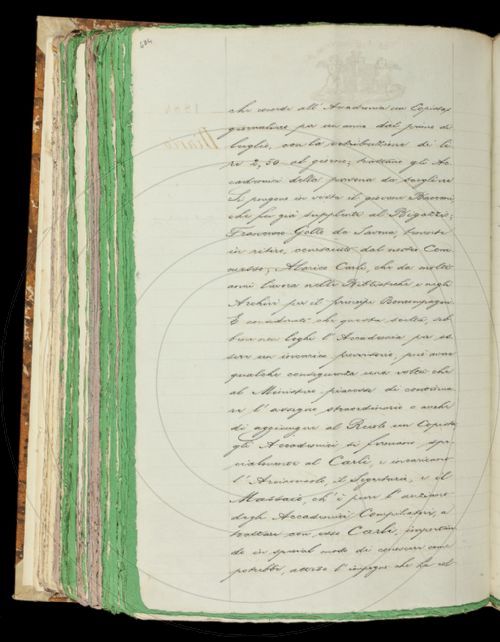 684
che accorda all'Accademia un Copista
giornaliere per un anno dal primo di
luglio, con la retribuzione di li
re 2,50 al giorno; trattano gli Ac
cademici della persona da scegliere
Si pongono in vista il giovane Bacconi
che fu già supplente al Bigazzi;
Francesco Gelle da Savona, tenente
in ritiro, conosciuto dal nostro Com
messo; Alarico Carli, che da molti
anni lavora nelle Biblioteche e negli
Archivi per il principe Boncompagni
E considerato che questa scelta, seb
bene non leghi l'Accademia per es
sere un incarico provvisorio, può aver
qualche conseguenza una volta che
al Ministero piacesse di continua
re l'assegno straordinario o anche
di aggiungere al Ruolo un Copista
gli Accademici si fermano spe
cialmente al Carli, e incaricano
l'Arciconsolo, il Segretario, e il
Massaio, ch'è pure l'anziano
degli Accademici Compilatori, a
trattare con esso Carli, importan
do in special modo di conoscere come
potrebbe, atteso l'impegno che ha col